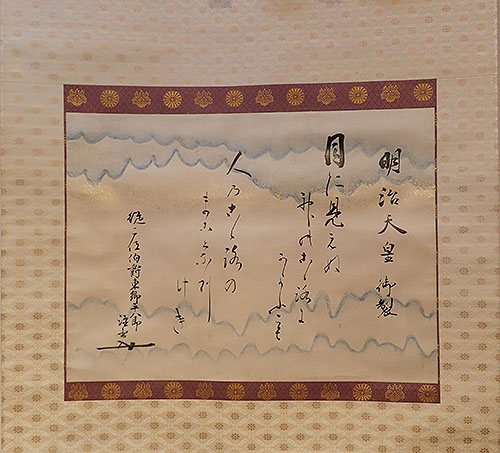 明治天皇御製
目に見えぬ
神のこゝ路に
かよふこそ
人乃こゝ路の
まことなり
け
従一位伯爵東郷平八郎
謹書